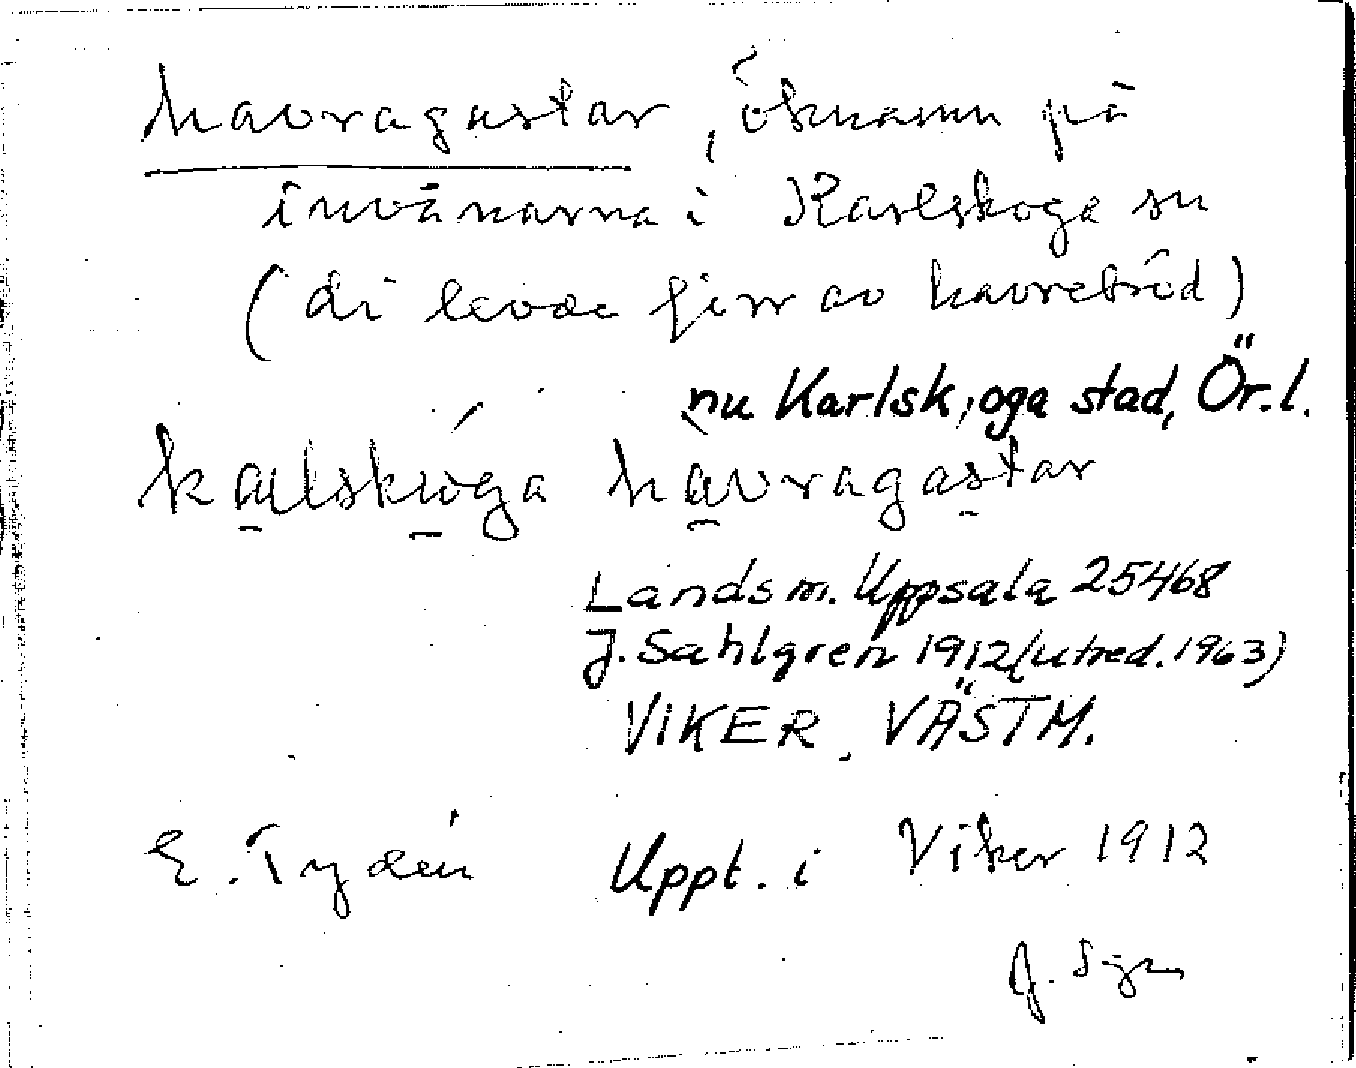 havragastar, öknamn på
invånarna i Karlskoga sn
(di levde fjirr av havrebröd)
nu Karlskoga stad, Ör.l.
havragastar
Landsm. Uppsala 25468
J. Sahlgren 1912 (utred. 1963)
VIKER, VÄSTM.
E. Tydén Uppt. i Viker 1912
J. Sgn